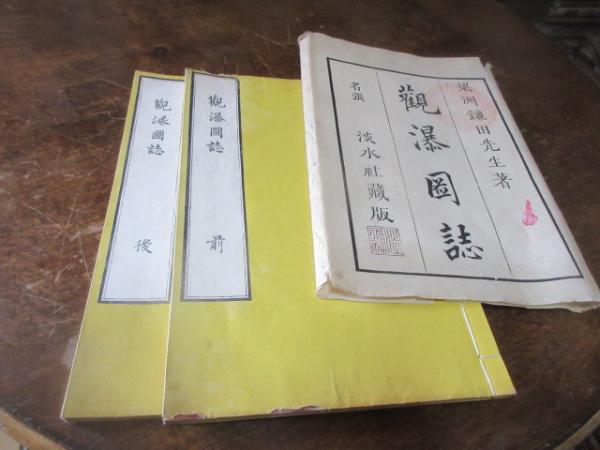 梁洲鎌田先生著
觀瀑圖誌
名張
淡水社藏版
觀瀑圖誌
前
觀瀑圖誌
後